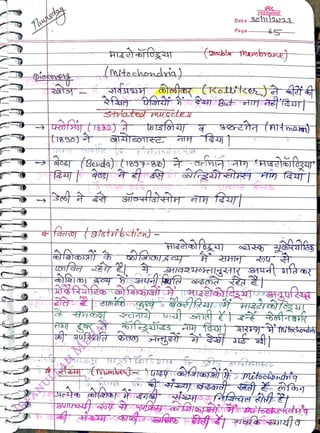 Thursday
Date 30/11/2023
Page 65
माइटोकॉन्ड्रिया (Double Membrane)
(Mitochondria)
Discovery
खोज - सर्वप्रथम कोलीकर (Kolliker) ने कीटों की
रेखित पेशियों में देखा But नाम नहीं दिया।
Striated muscles
→ फ्लेमिंग (1882) ने फाइलिया व अल्टमेन (Altmann)
(1890) ने बायोब्लास्ट नाम दिया।
→ बेन्डा (Benda) (1897-98) ने वर्तमान नाम 'माइटोकॉन्ड्रिया'
दिया। बेन्डा ने ही इसे कॉन्ड्रियोसोम्स नाम दिया।
→ ने इसे ऑक्सीसोम नाम दिया।
* वितरण (Distribution) -
माइटोकॉन्ड्रिया यूकैरियोटिक
कोशिकाओं के कोशिकाद्रव्य में समान रूप से
रहते हैं। ये आवश्यकतानुसार अपनी गति कर
कोशिका द्रव्य में अपनी स्थिति बदलते रहते हैं।
प्रोकैरियोटिक कोशिकाओं में माइटोकॉन्ड्रिया अनुपस्थित
होते हैं। कुछ बैक्टीरिया में माइटोकॉन्ड्रिया
के समकक्ष रचनायें पायी जाती हैं। इन्हें
तथा ने कॉन्ड्रियोइड नाम दिया। प्रारम्भ में Mitochondria
की उपस्थिति केवल जन्तुओं में देखी गई थी।
* संख्या (Number) - कोशिकाओं में Mitochondria
की संख्या बदलती रहती है लेकिन
प्रत्येक कोशिका में इनकी संख्या निश्चित होती है।
रूप से कोशिकाओं में Mitochondria
की संख्या अधिक होती है